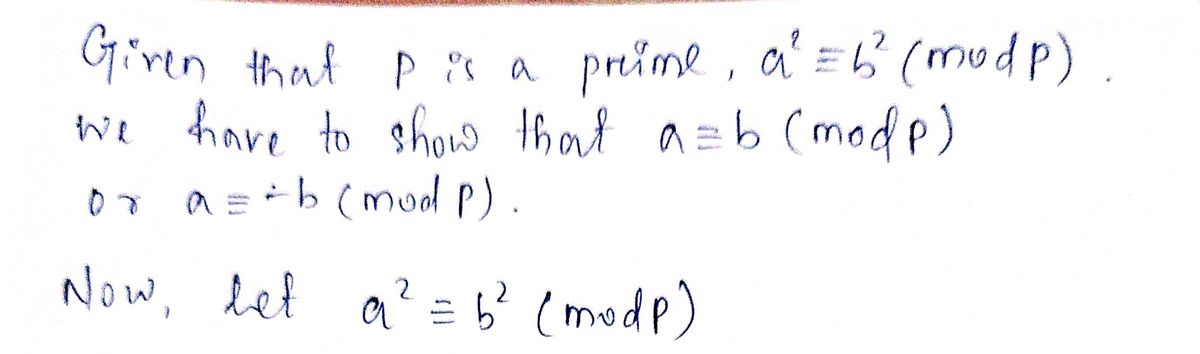 Given that p is a prime, a² ≡ b² (mod p).
we have to show that a ≡ b (mod p)
or a ≡ -b (mod p).
Now, let a² ≡ b² (mod p)